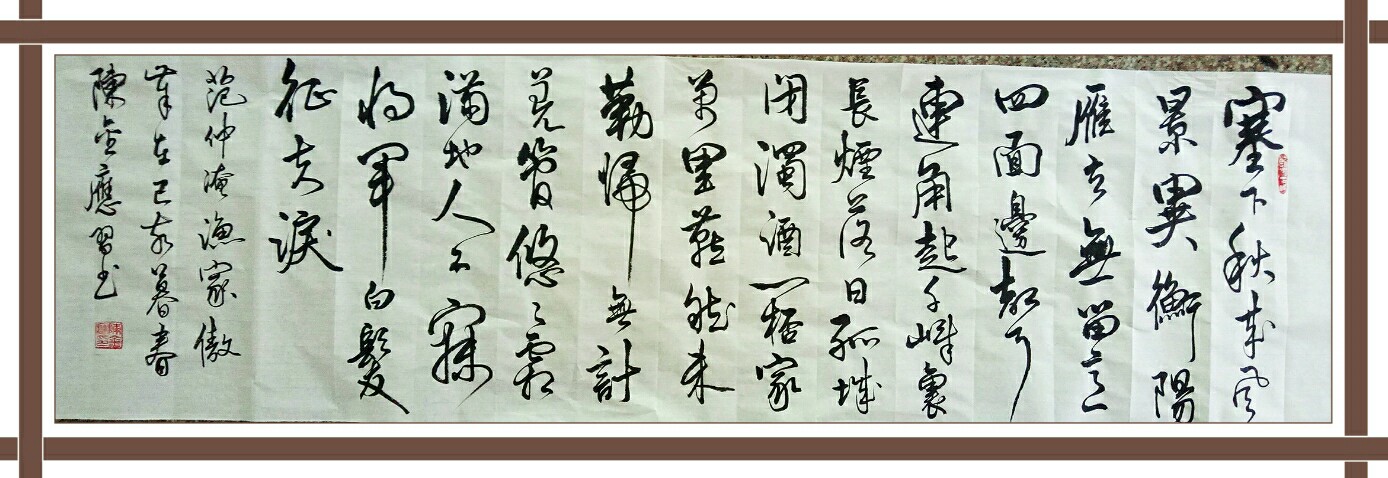 塞下秋来风
景異衡陽
雁去無留意
四面邊聲
連角起千嶂裏
長煙落日孤城
閉濁酒一杯家
萬里燕然未
勒歸無計
羌管悠〻霜
滿地人不寐
將軍白髮
征夫淚
范仲淹漁家傲
歲在己亥暮春
陳金應習书